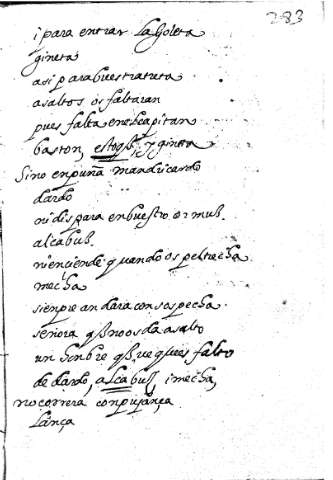 283
i para entrar la Goleta
gineta
asi para buestra treta
asaltos os faltaran
pues falta en el capitan
baston, estoq̃, y gineta
Sino enpuña mandricardo
dardo
ni dispara en buestro mur.
alcabuz.
ni enciende quando os peltrecha
mecha
sienpre andara con sospecha.
señora q̃ no os da asalto
un honbre q̃ ue q̃ es falto
de dardo, alcabuz, i mecha,
no correra con pujãnça
lança